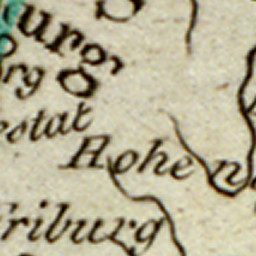 urg
rg
estat
Hohen
Friburg